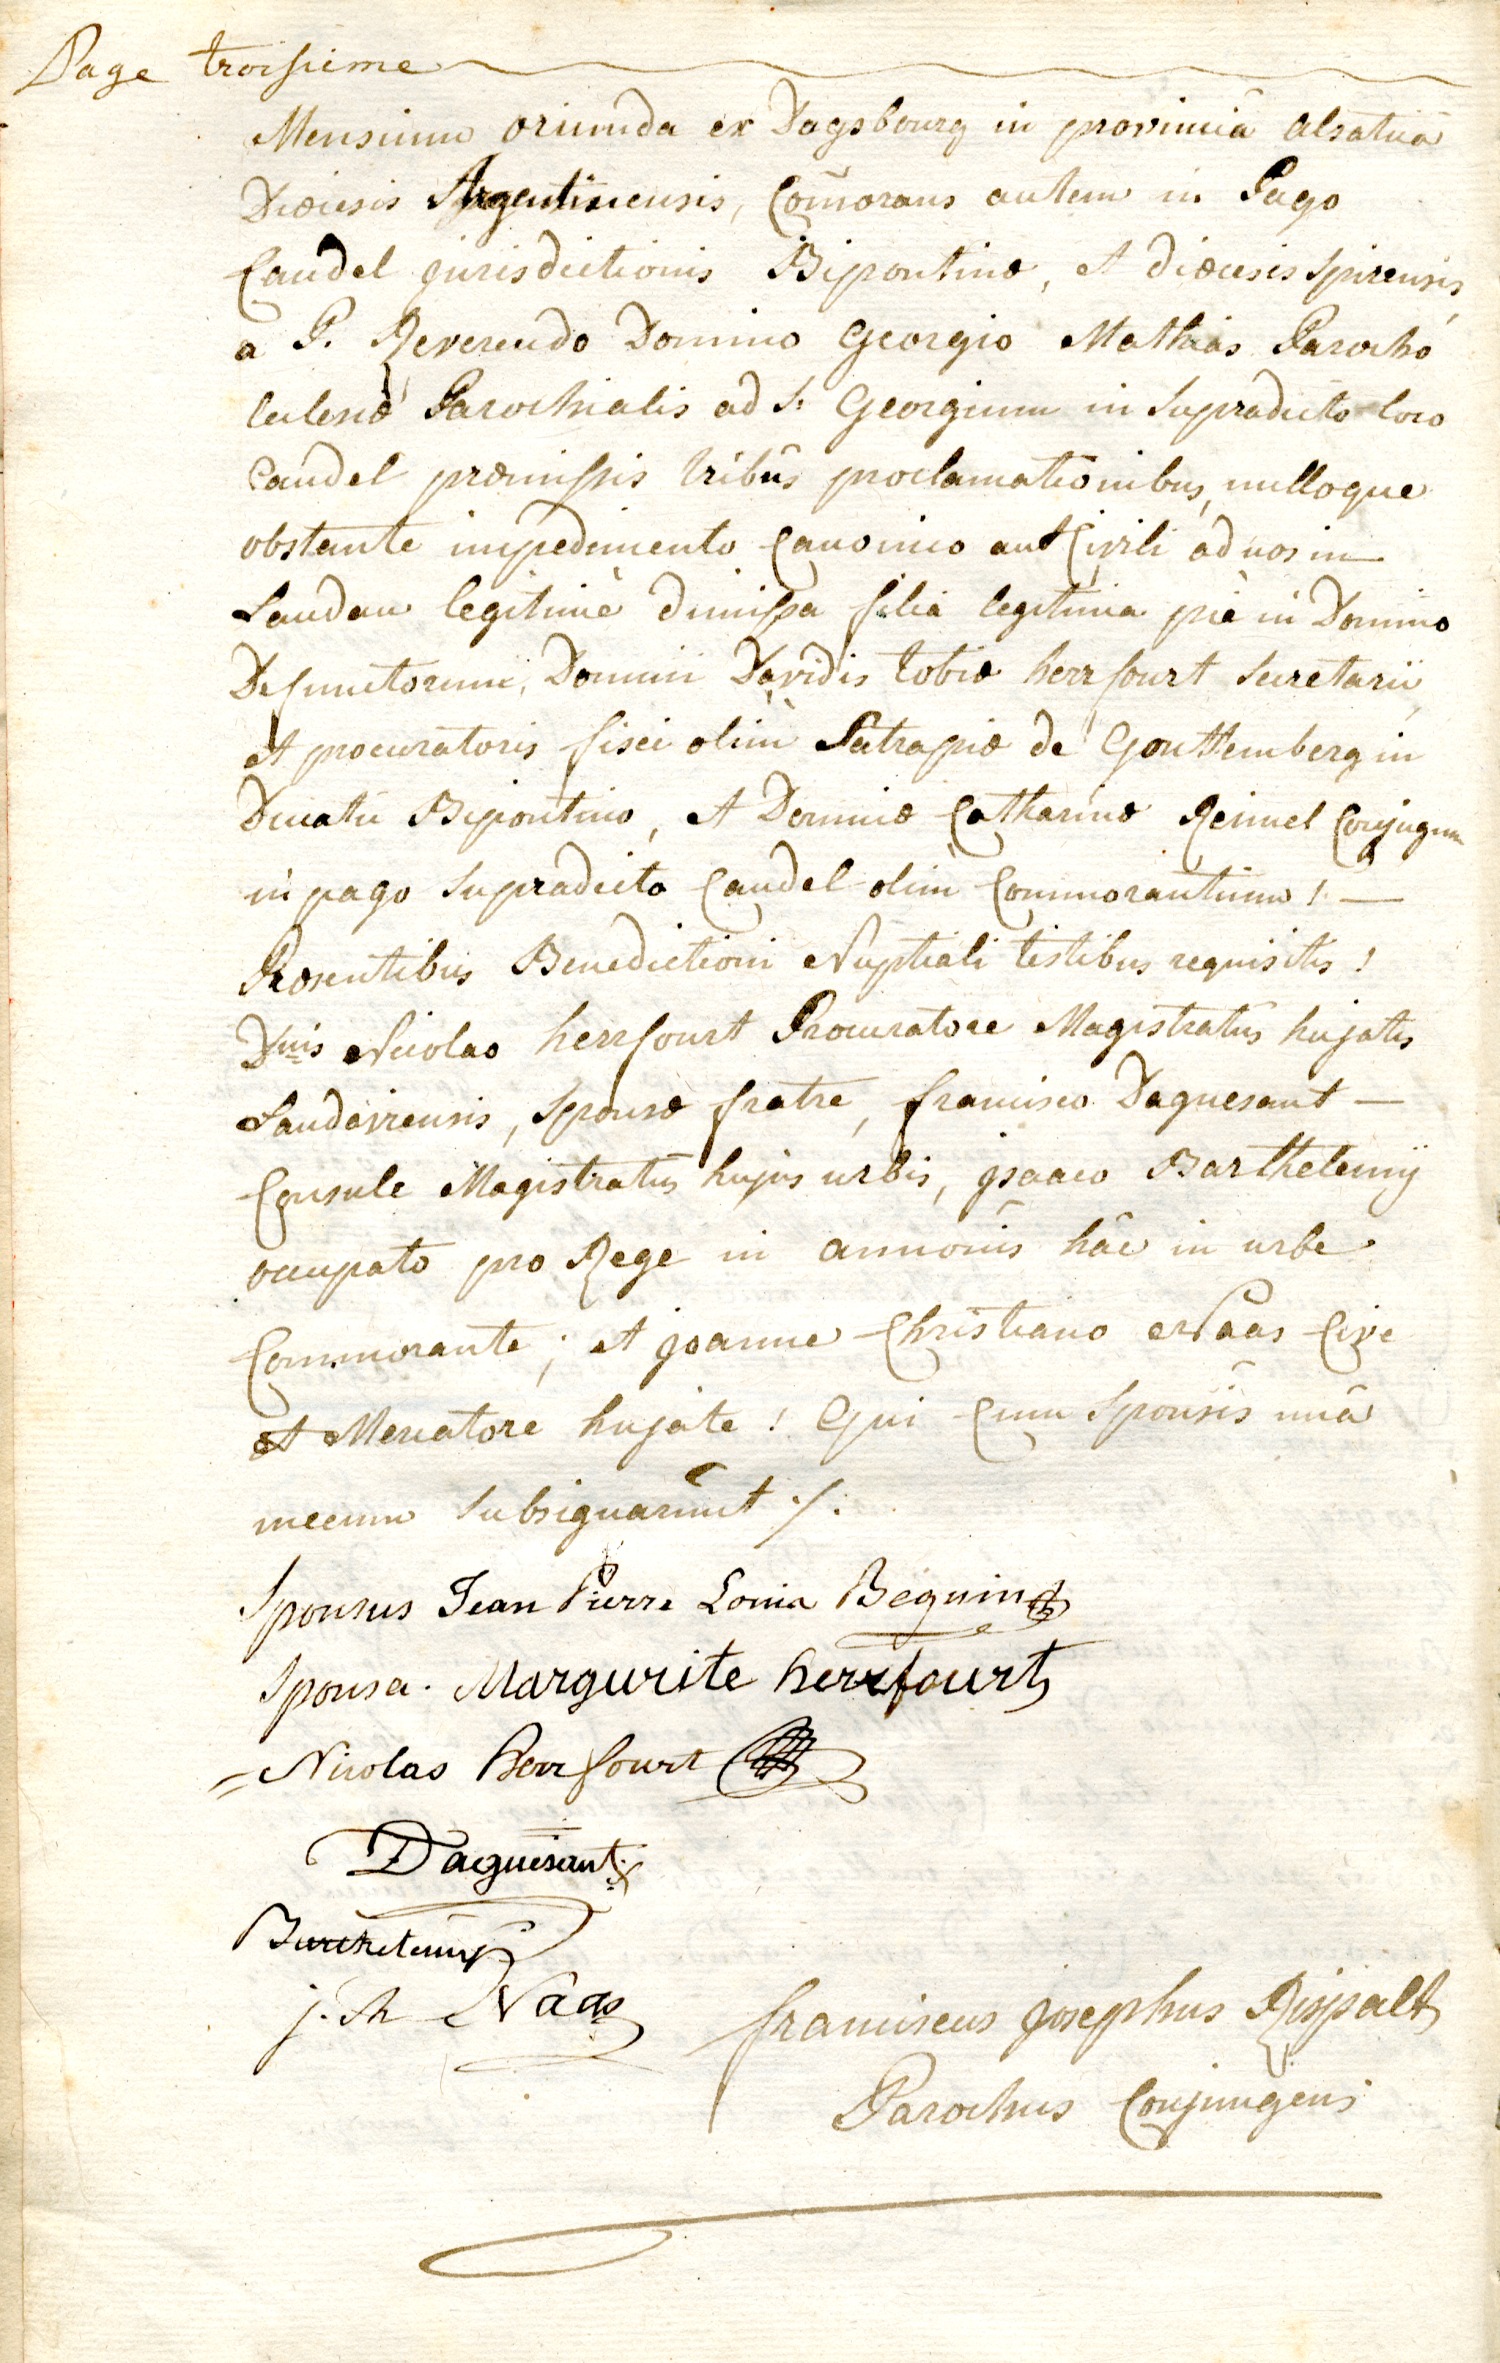 Page troisieme
Mensium oriunda ex Dagsbourg in provinciâ alsatiâ
Diœcesis Argentinensis, Com̄orans autem in Pago
Caudel jurisdictionis Bipontinæ, et diœcesis spirensis,
a P. Reverendo Domino Georgio Mathias Parocho
Eclesiæ Parochialis ad S: Georgium in supradicto loco
Caudel præmissis tribûs proclamationibus, nulloque
obstante impedimento Canonico aut Civili ad nos in
Landau legitimè dimissa filia legitima piè in Domino
Defunctorum, Domini Davidis tobiæ herrfourt secretarii,
et procuratoris fisci olim Satrapiæ de Gouttemberg in
Ducatu Bipontino, et Dominæ Catharinæ Reimel Conjugum
in pago supradicto Caudel olim Commorantium! —
Præsentibus Benedictioni Nuptiali testibus requisitis!
Dnis Nicolao herrfourt Procuratore Magistratûs hujatis
Landaviensis, sponsæ fratre, francisco Daguesant —
Consule Magistratûs hujus urbis, jsaaco Barthelemÿ
occupato pro Rege in annonis hâc in urbe
Commorante; et joanne Christiano Naas Cive
et Mercatore hujate! Qui Cum Sponsis unâ
mecum subsignarunt ./.
Sponsus Jean Pierre Louia Beguin
Sponsa. Margurite herrfourt
= Nicolas herrfourt
Daguesant
Barthelemÿ
j. Ch Naas
franciscus josephus Rispalt
Parochus Conjungens